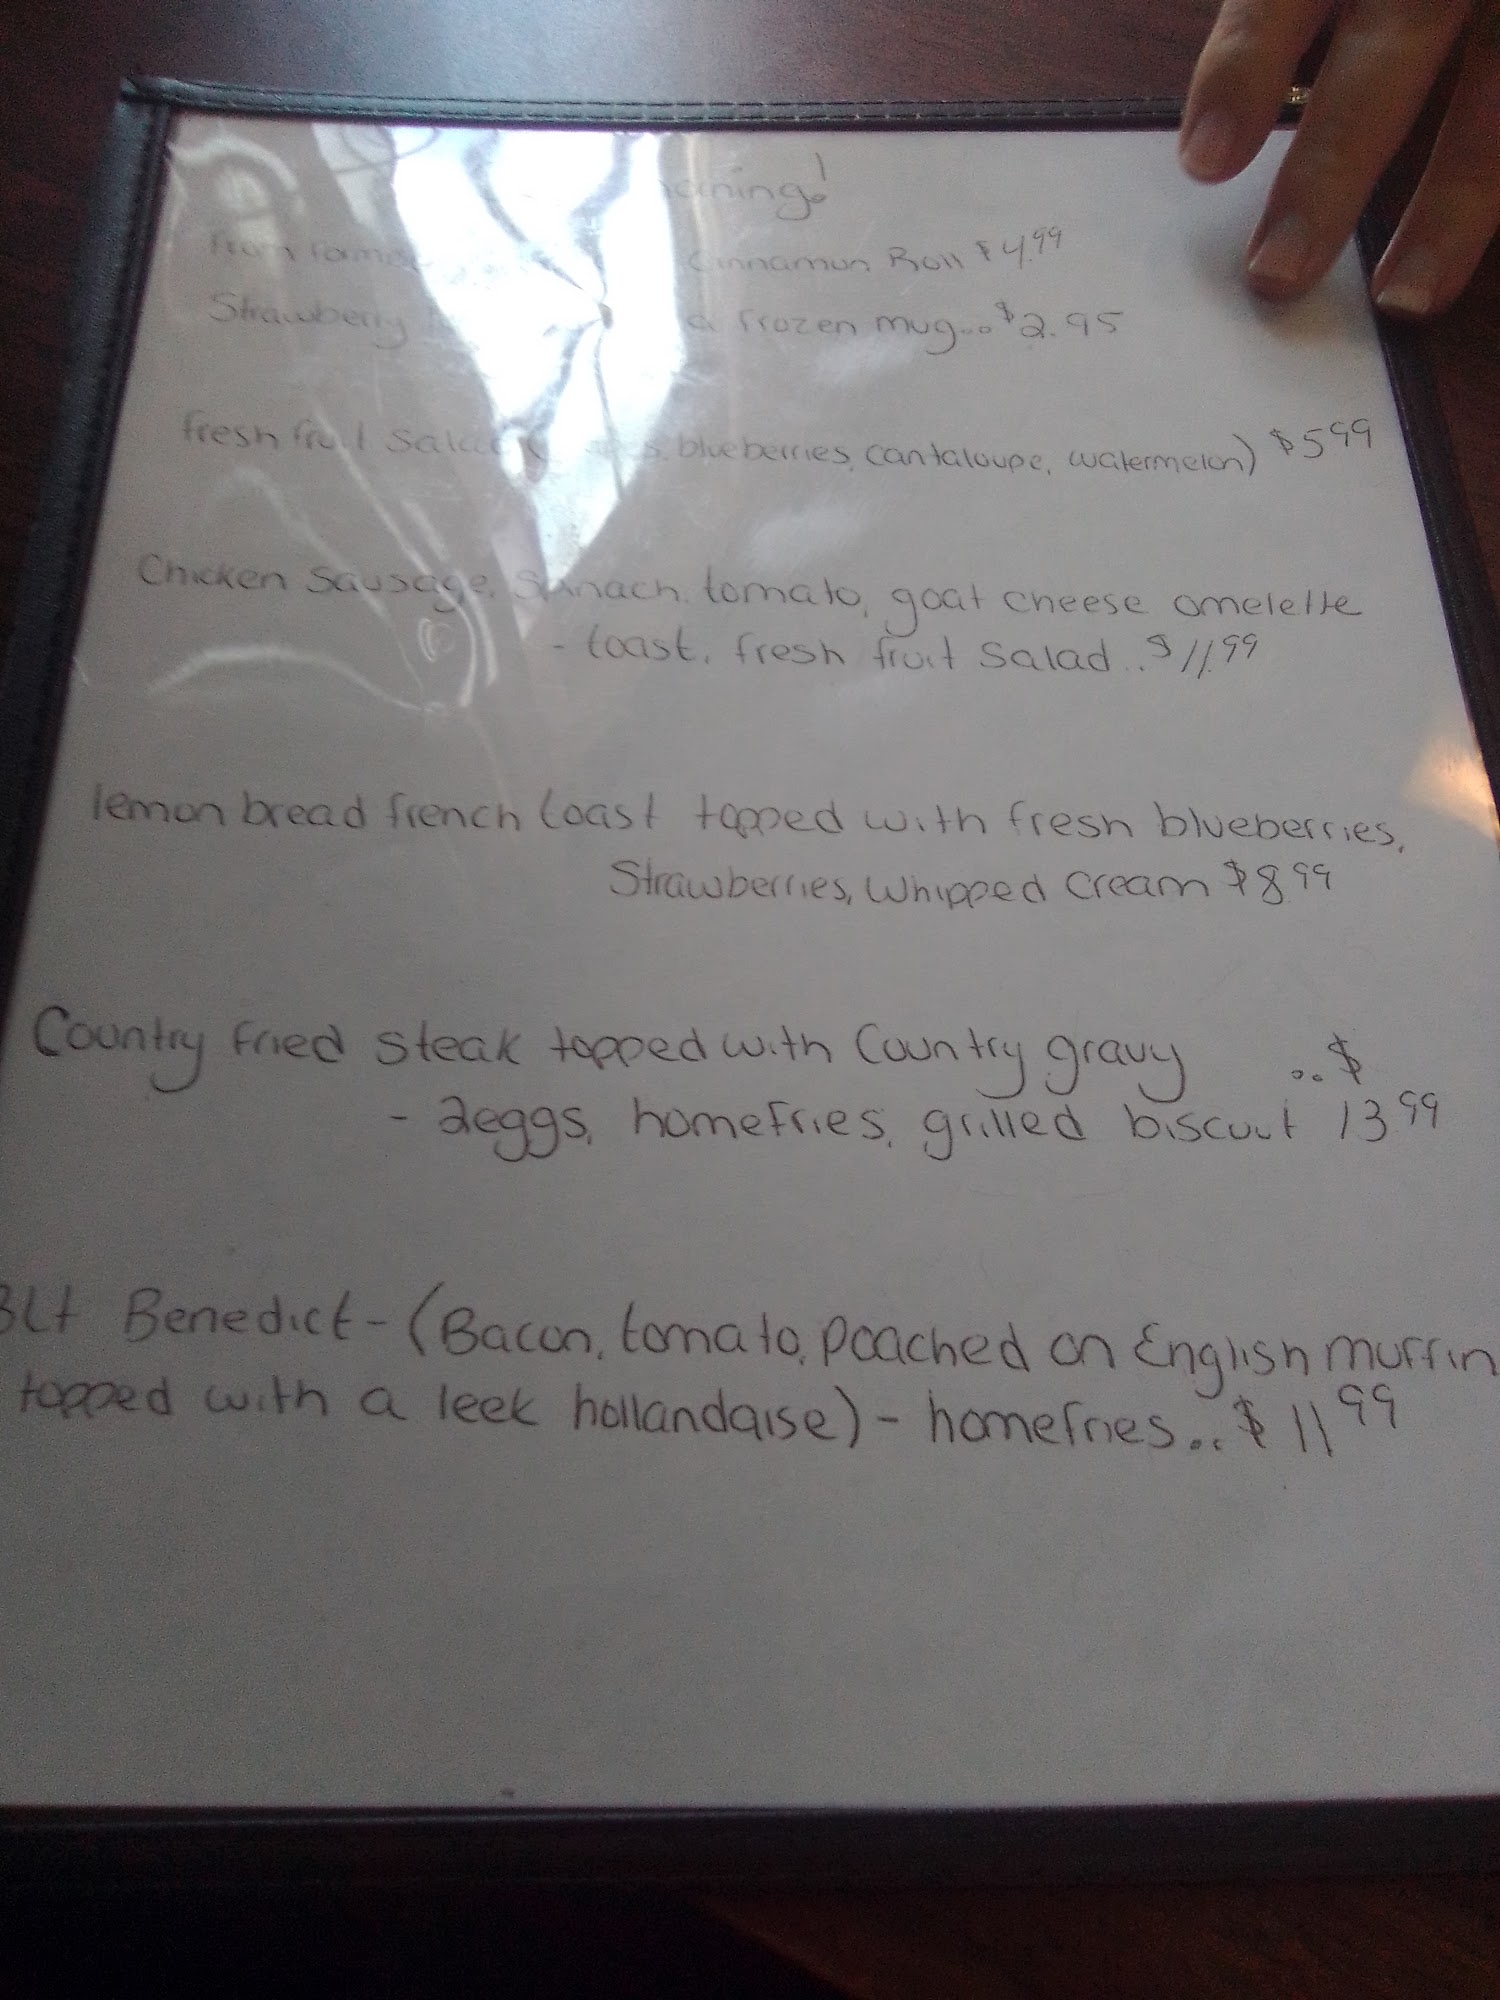 Cinnamon Roll $4.99
Strawberry a frozen mug... $2.95
fresh fruit salad blueberries, cantaloupe, watermelon) $5.99
Chicken Sausage, Spinach, tomato, goat cheese omelette
- toast, fresh fruit salad.. $11.99
lemon bread french toast topped with fresh blueberries,
Strawberries, whipped cream $8.99
Country fried steak topped with Country gravy ..$
- 2eggs, homefries, grilled biscuit 13.99
BLT Benedict - (Bacon, tomato, poached on English muffin
topped with a leek hollandaise) - homefries... $11.99